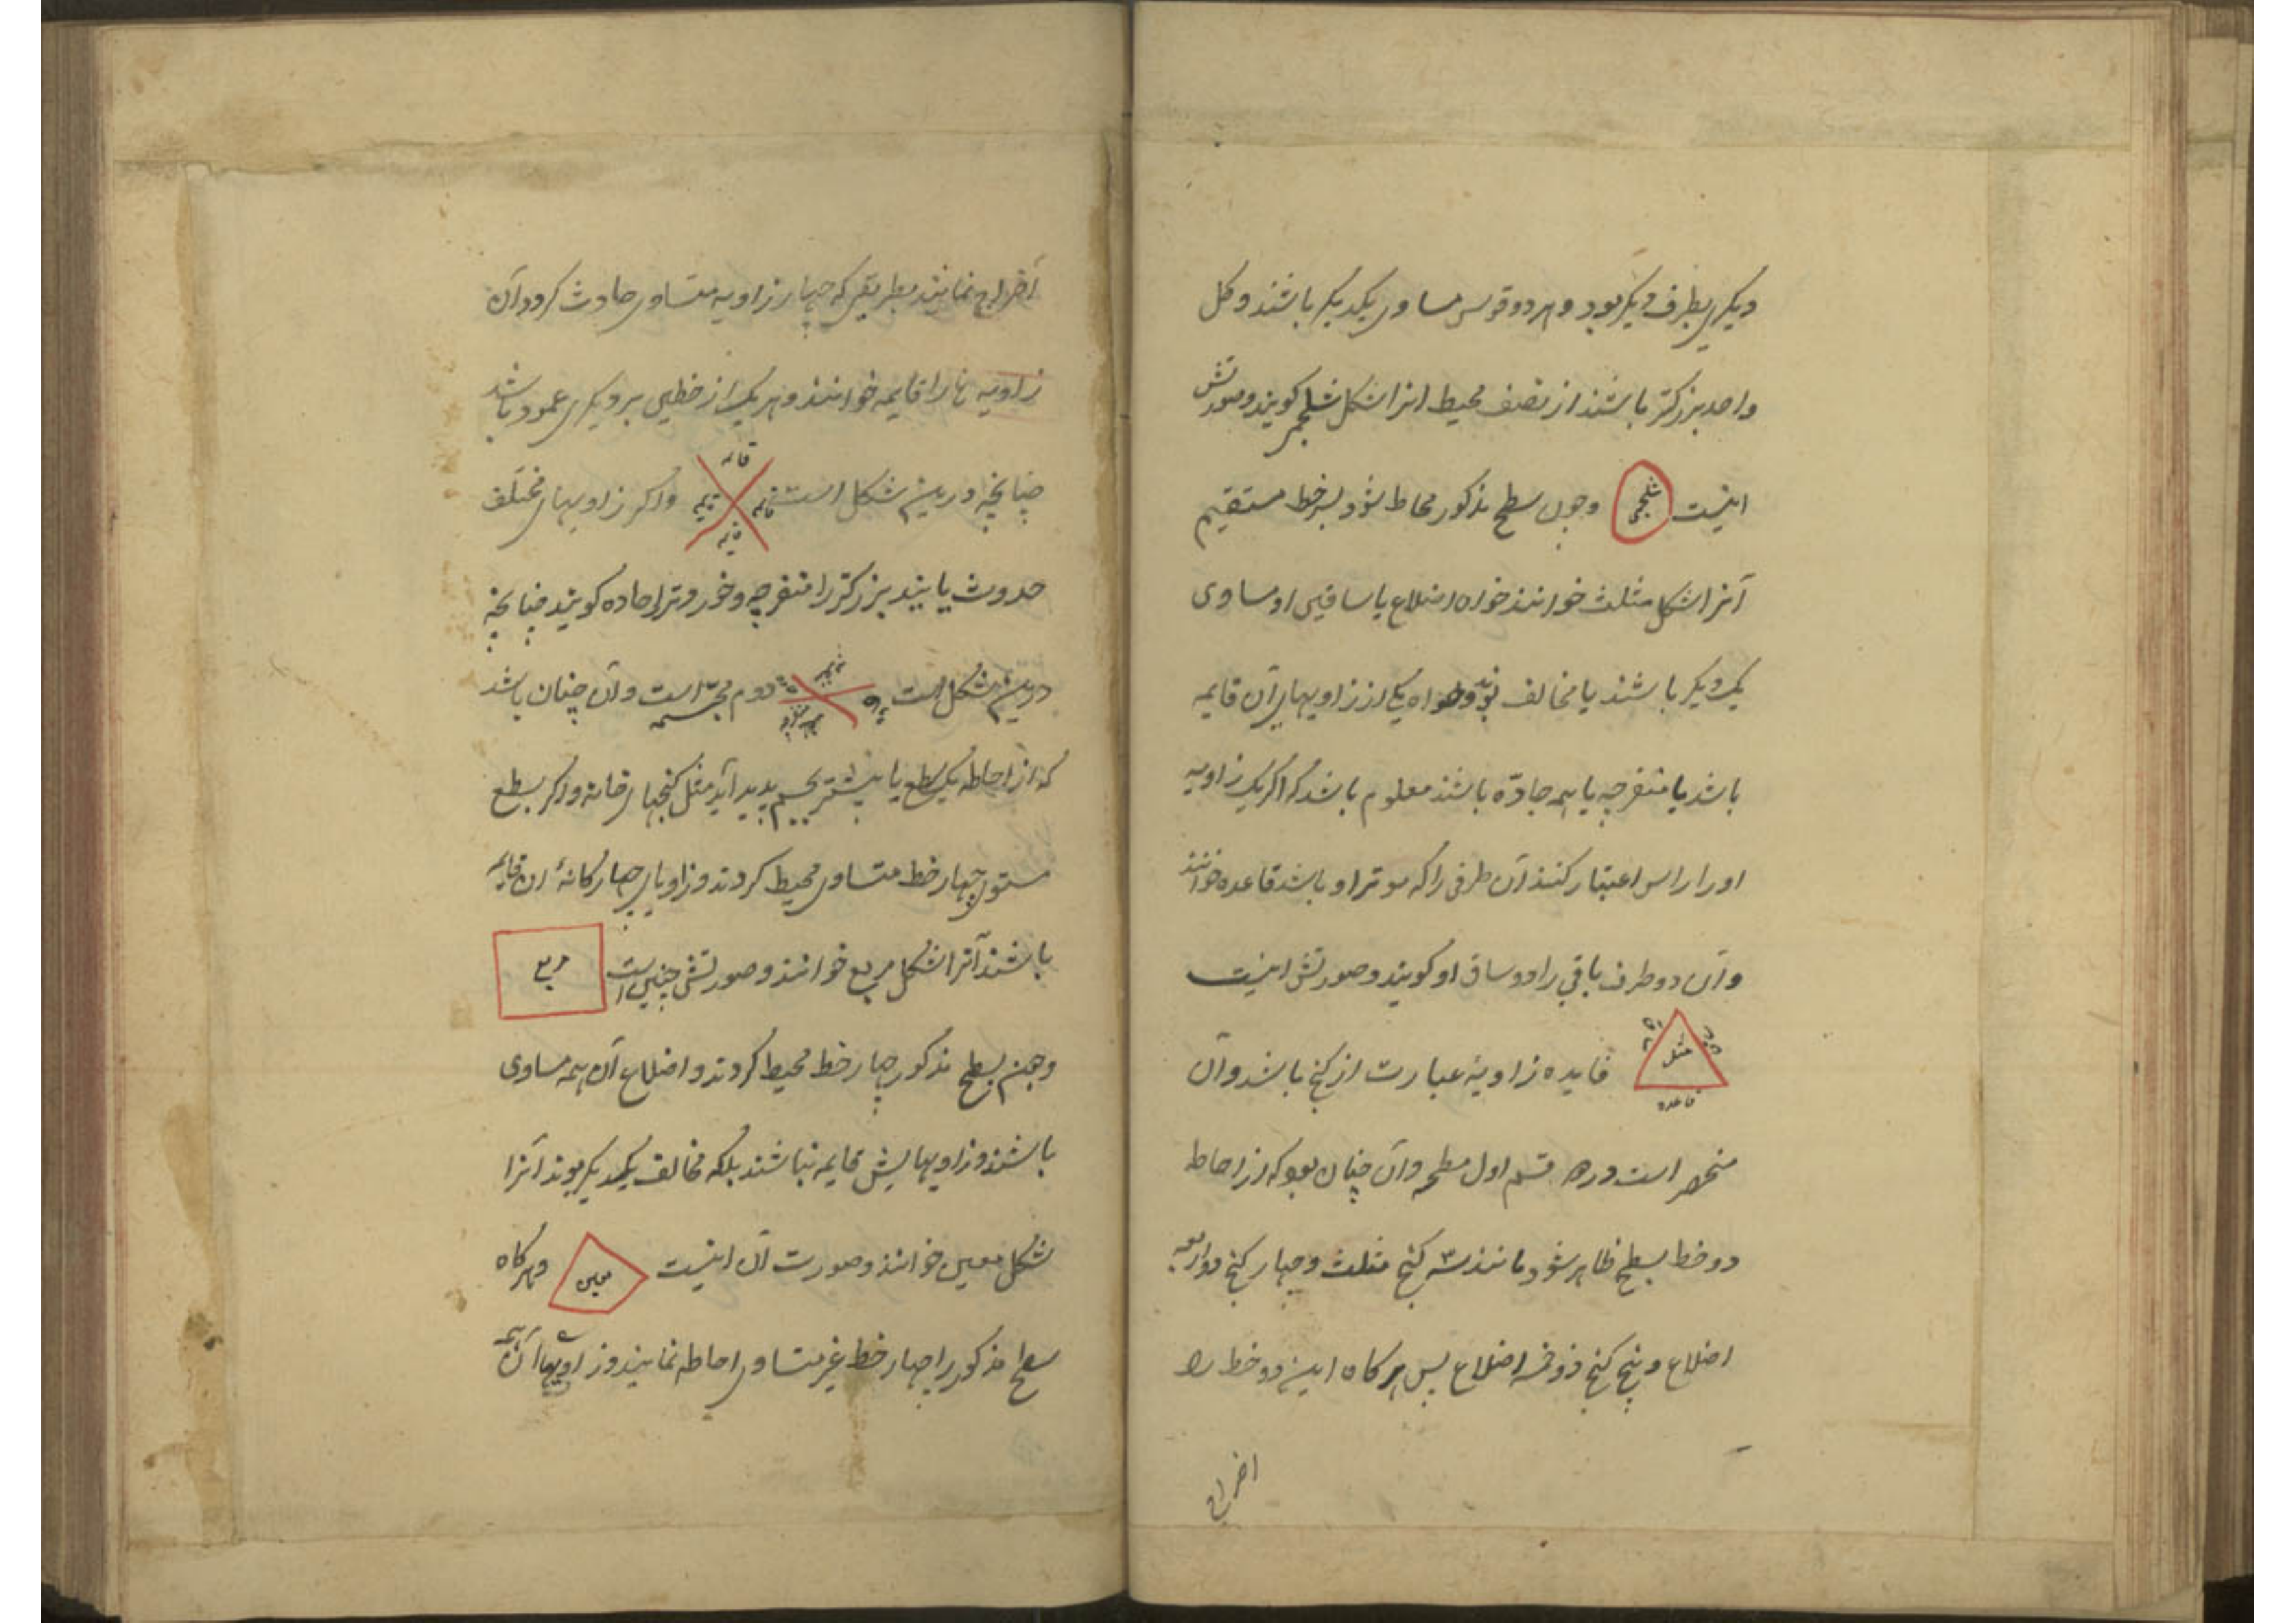 دیکری بطرف دیکر بود و هر دو قوس مساوی یکدیکر باشند و کل
واحد بزرکتر باشند از نصف محیط انرا شکل شلجمی کویند و صورتش
اینست
شلجمی
وچون سطح مذکور محاط شود بسه خط مستقیم
آنرا شکل مثلث خوانند خواه اضلاع یا ساقین او مساوی
یک دیکر باشند یا مخالف بوند و خواه یکی از زاویهای آن قایمه
باشد یا منفرجه یا همه حادّه باشند معلوم باشد که اکر یک زاویه
اورا راس اعتبار کنند آن طرفی را که موتر او باشد قاعده خوانند
وآن دو طرف باقی را دو ساق او کویند و صورتش اینست
مثلث
قاعده
فایده زاویهٔ عبارت از کنج باشد وآن
منحصر است در قسم اول مسطحه وآن چنان بود که از احاطه
دو خط بسطح ظاهر شود مانند سه کنج مثلث و چهار کنج ذو اربعه
اضلاع و پنج کنج ذو خمسه اضلاع پس هر کاه این دو خط را
اخراج
آخراج نمایند بطریقی که چهار زاویه متساوی حادث کردد آن
زاویه ها را قایمه خوانند و هر یک از خطین بر دیکری عمود باشد
چنانچه درین شکل است
قائمه
قائمه
قایمه
قایمه
واکر زاویهای مختلف
حدوث یابند بزرکتر را منفرجه و خوردتر را حاده کویند چنانچه
درین شکل است
دوم مجسمه است وآن چنان باشد
که از احاطه یک سطح یا بیشتر بجسم پدید آید مثل کنجهای خانه واکر بسطح
مستوی چهار خط متساوی محیط کردند و زاویای چهارکانهٔ ان قایمه
باشند آنرا شکل مربع خوانند و صورتش چنین است
مربع
وچون بسطح مذکور چهار خط محیط کردند و اضلاع آن همه مساوی
باشند و زاویهایش قایمه نباشند بلکه مخالف یکدیکر بوند آنرا
شکل معین خوانند و صورت آن اینست
معین
وهر کاه
سطح مذکور را چهار خط غیر متساوی احاطه نمایند و زاویهای آن همه